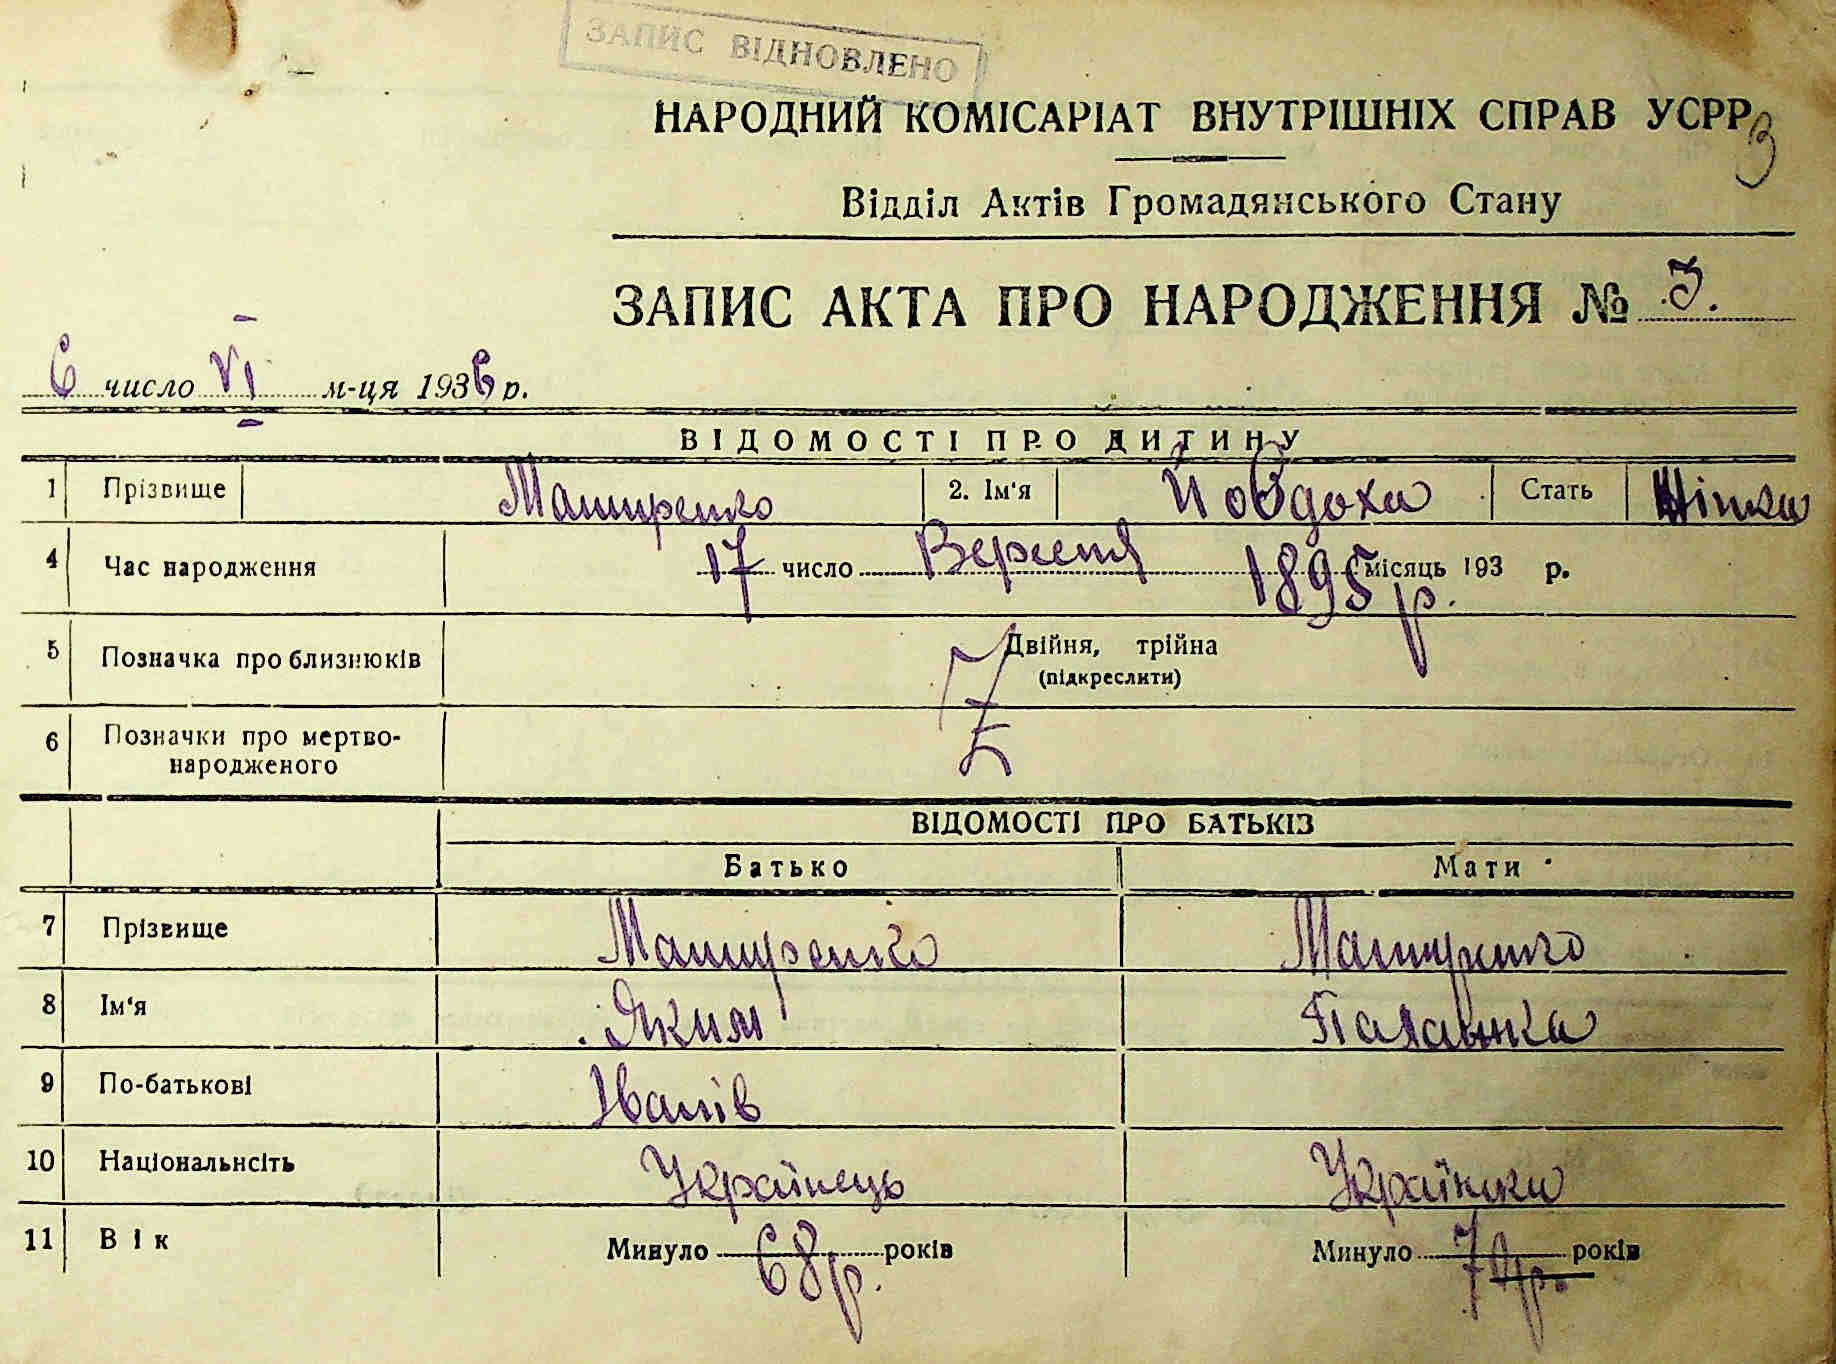 ЗАПИС ВІДНОВЛЕНО
НАРОДНИЙ КОМІСАРІАТ ВНУТРІШНІХ СПРАВ УСРР
3
Відділ Актів Громадянського Стану
ЗАПИС АКТА ПРО НАРОДЖЕННЯ № 3.
6 число VI м-ця 1936 р.
ВІДОМОСТІ ПРО ДИТИНУ
1 Прізвище Машуренко 2. Ім'я Йовдоха Стать Жінка
4 Час народження 17 число Вересня 1895 р. місяць 193 р.
5 Позначка про близнюків Двійня, трійна
(підкреслити)
6 Позначки про мертво-
народженого
ВІДОМОСТІ ПРО БАТЬКІЗ
Батько Мати
7 Прізвище Машуренко Машуренко
8 Ім'я Яким Палажка
9 По-батькові Іванів
10 Національнсіть Українець Українка
11 Вік Минуло 68 р. років Минуло 70 р. років